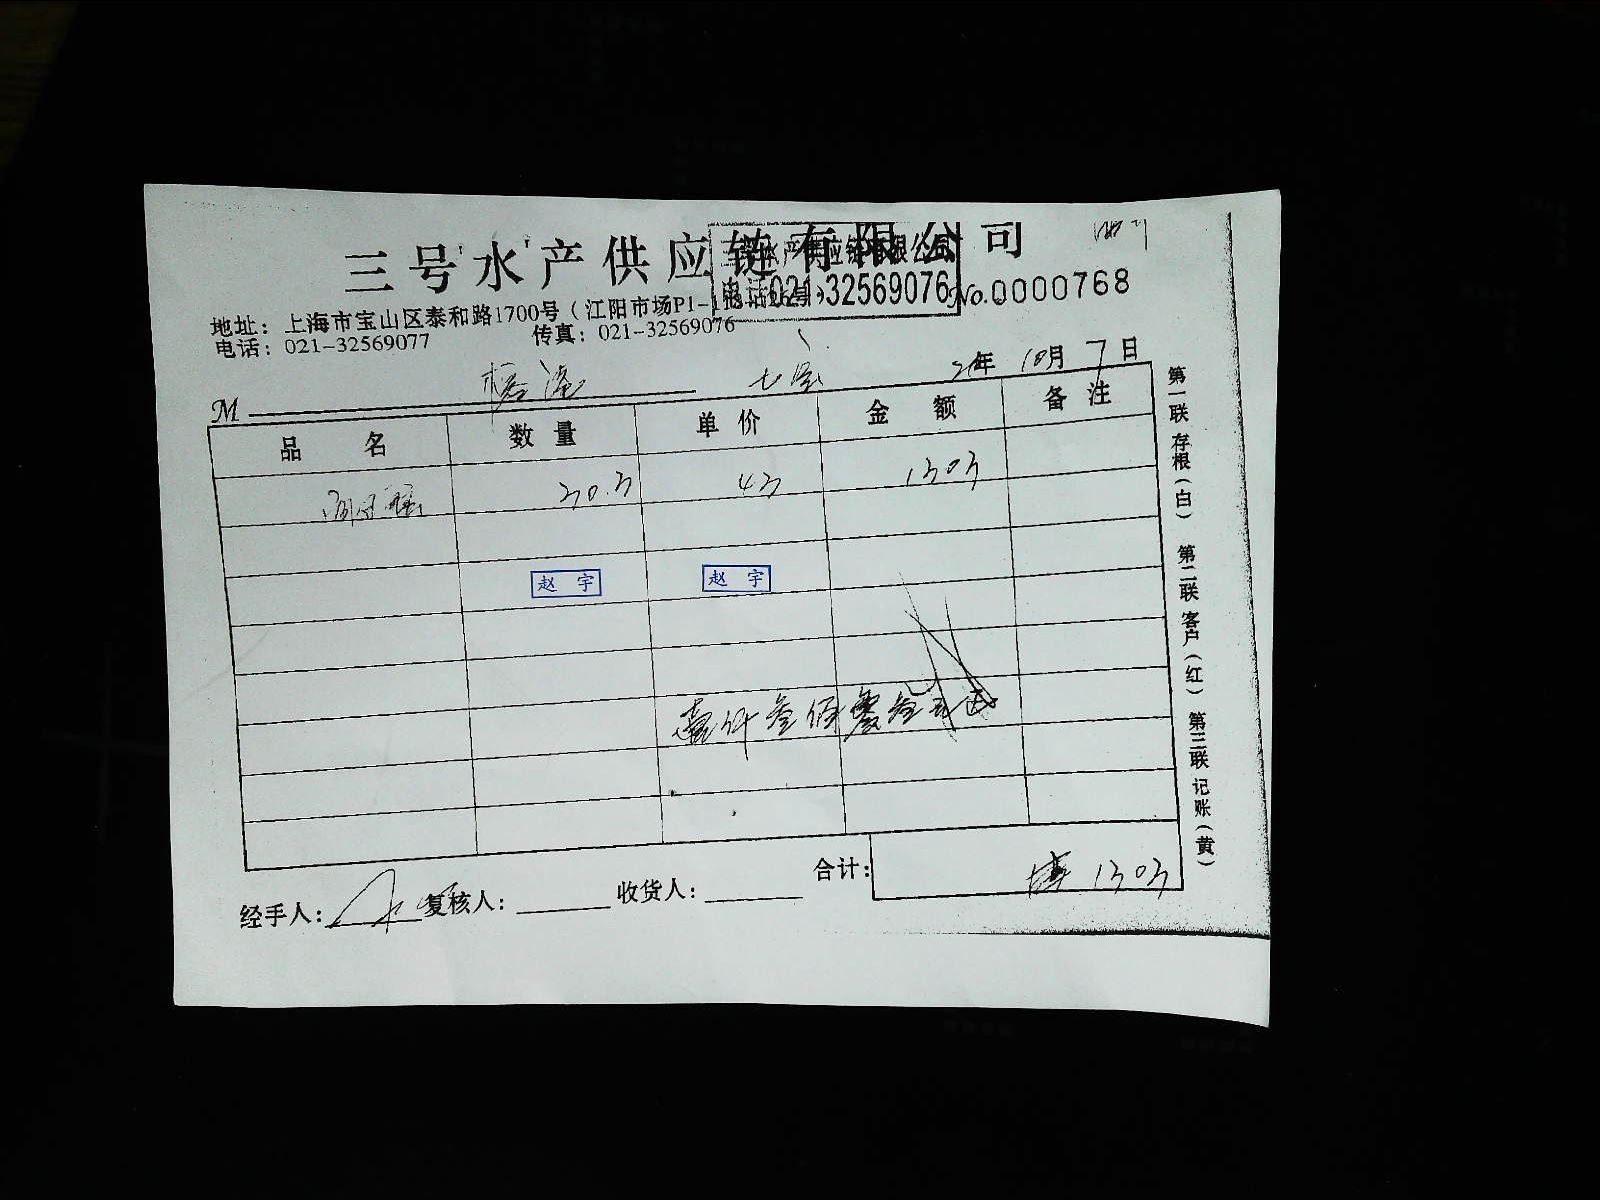 三号水产供应链有限公司
三号水产供应链有限公司
电话:021-32569076
No.0000768
地址：上海市宝山区泰和路1700号（江阳市场P1-
电话：021-32569077 传真：021-32569076
年 10月 7日
M
品名 数量 单价 金额 备注
30.3 43 1303
赵宇 赵宇
壹仟叁佰零叁元
合计： 1303
经手人： 复核人： 收货人：
第一联存根（白） 第二联客户（红） 第三联记账（黄）